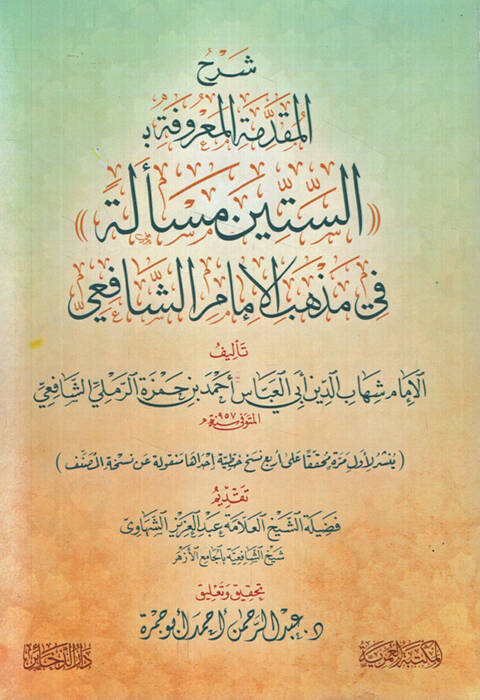 شرح
المقدمة المعروفة بـ
«الستين مسألة»
في مذهب الإمام الشافعي
تأليف
الإمام شهاب الدين أبي العباس أحمد بن حمزة الرملي الشافعي
المتوفى سنة ٩٥٧ هـ
( ينشر لأول مرة محققا على أربع نسخ خطية إحداها منقولة عن نسخة المصنف )
تقديم
فضيلة الشيخ العلامة عبد العزيز الشهاوي
شيخ الشافعية بالجامع الأزهر
تحقيق وتعليق
د. عبد الرحمن أحمد أبو جمرة
المكتبة العمرية
دار الذخائر